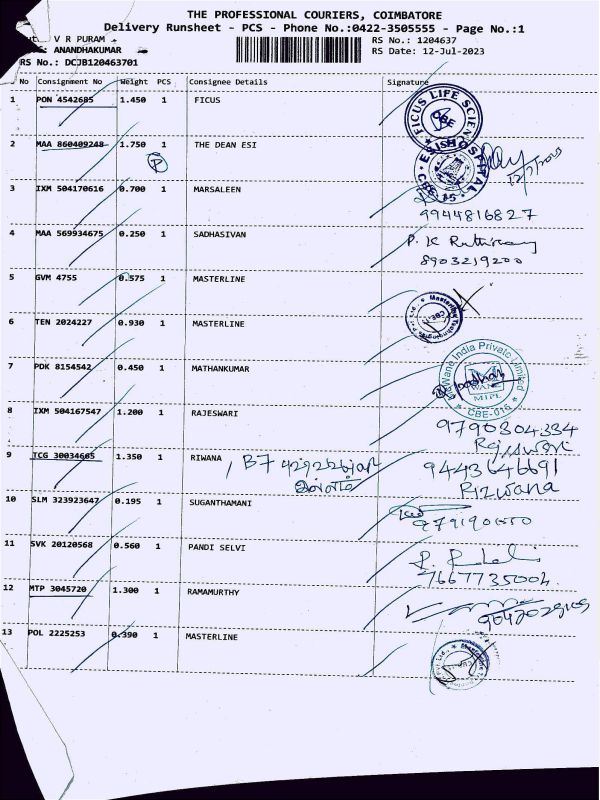 THE PROFESSIONAL COURIERS, COIMBATORE
Delivery Runsheet - PCS - Phone No.:0422-3505555 - Page No.:1
V R PURAM
RS No.: 1204637
ANANDHAKUMAR
RS Date: 12-Jul-2023
RS No.: DCJB120463701
No Consignment No Weight PCS Consignee Details Signature
1 PON 4542685 1.450 1 FICUS
2 MAA 860409248 1.750 1 THE DEAN ESI
A
3 IXM 504170616 0.700 1 MARSALEEN
9944816827
4 MAA 569934675 0.250 1 SADHASIVAN
8903219200
5 GVM 4755 0.575 1 MASTERLINE
6 TEN 2024227 0.930 1 MASTERLINE
7 PDK 8154542 0.450 1 MATHANKUMAR
WaWana India Private Limited
MIPL
CBE-016
8 IXM 504167547 1.200 1 RAJESWARI
9790304334
Rajeswari
9 TCG 30034665 1.350 1 RIWANA
9443646691
Rizwana
10 SLM 323923647 0.195 1 SUGANTHAMANI
11 SVK 20120568 0.560 1 PANDI SELVI
7667735004
12 MTP 3045720 1.300 1 RAMAMURTHY
13 POL 2225253 0.390 1 MASTERLINE